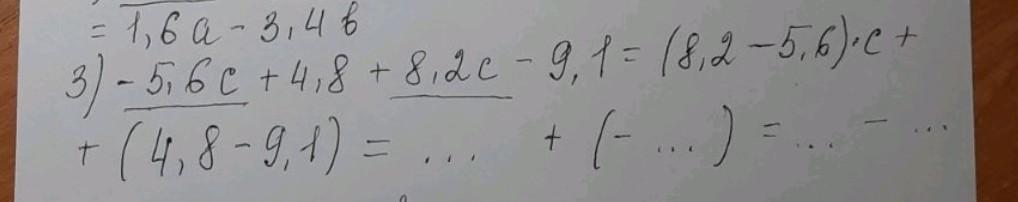 = 1,6a - 3,4b
3) - 5,6c + 4,8 + 8,2c - 9,1 = (8,2 - 5,6)·c +
+ (4,8 - 9,1) = ... + (- ...) = ... - ...